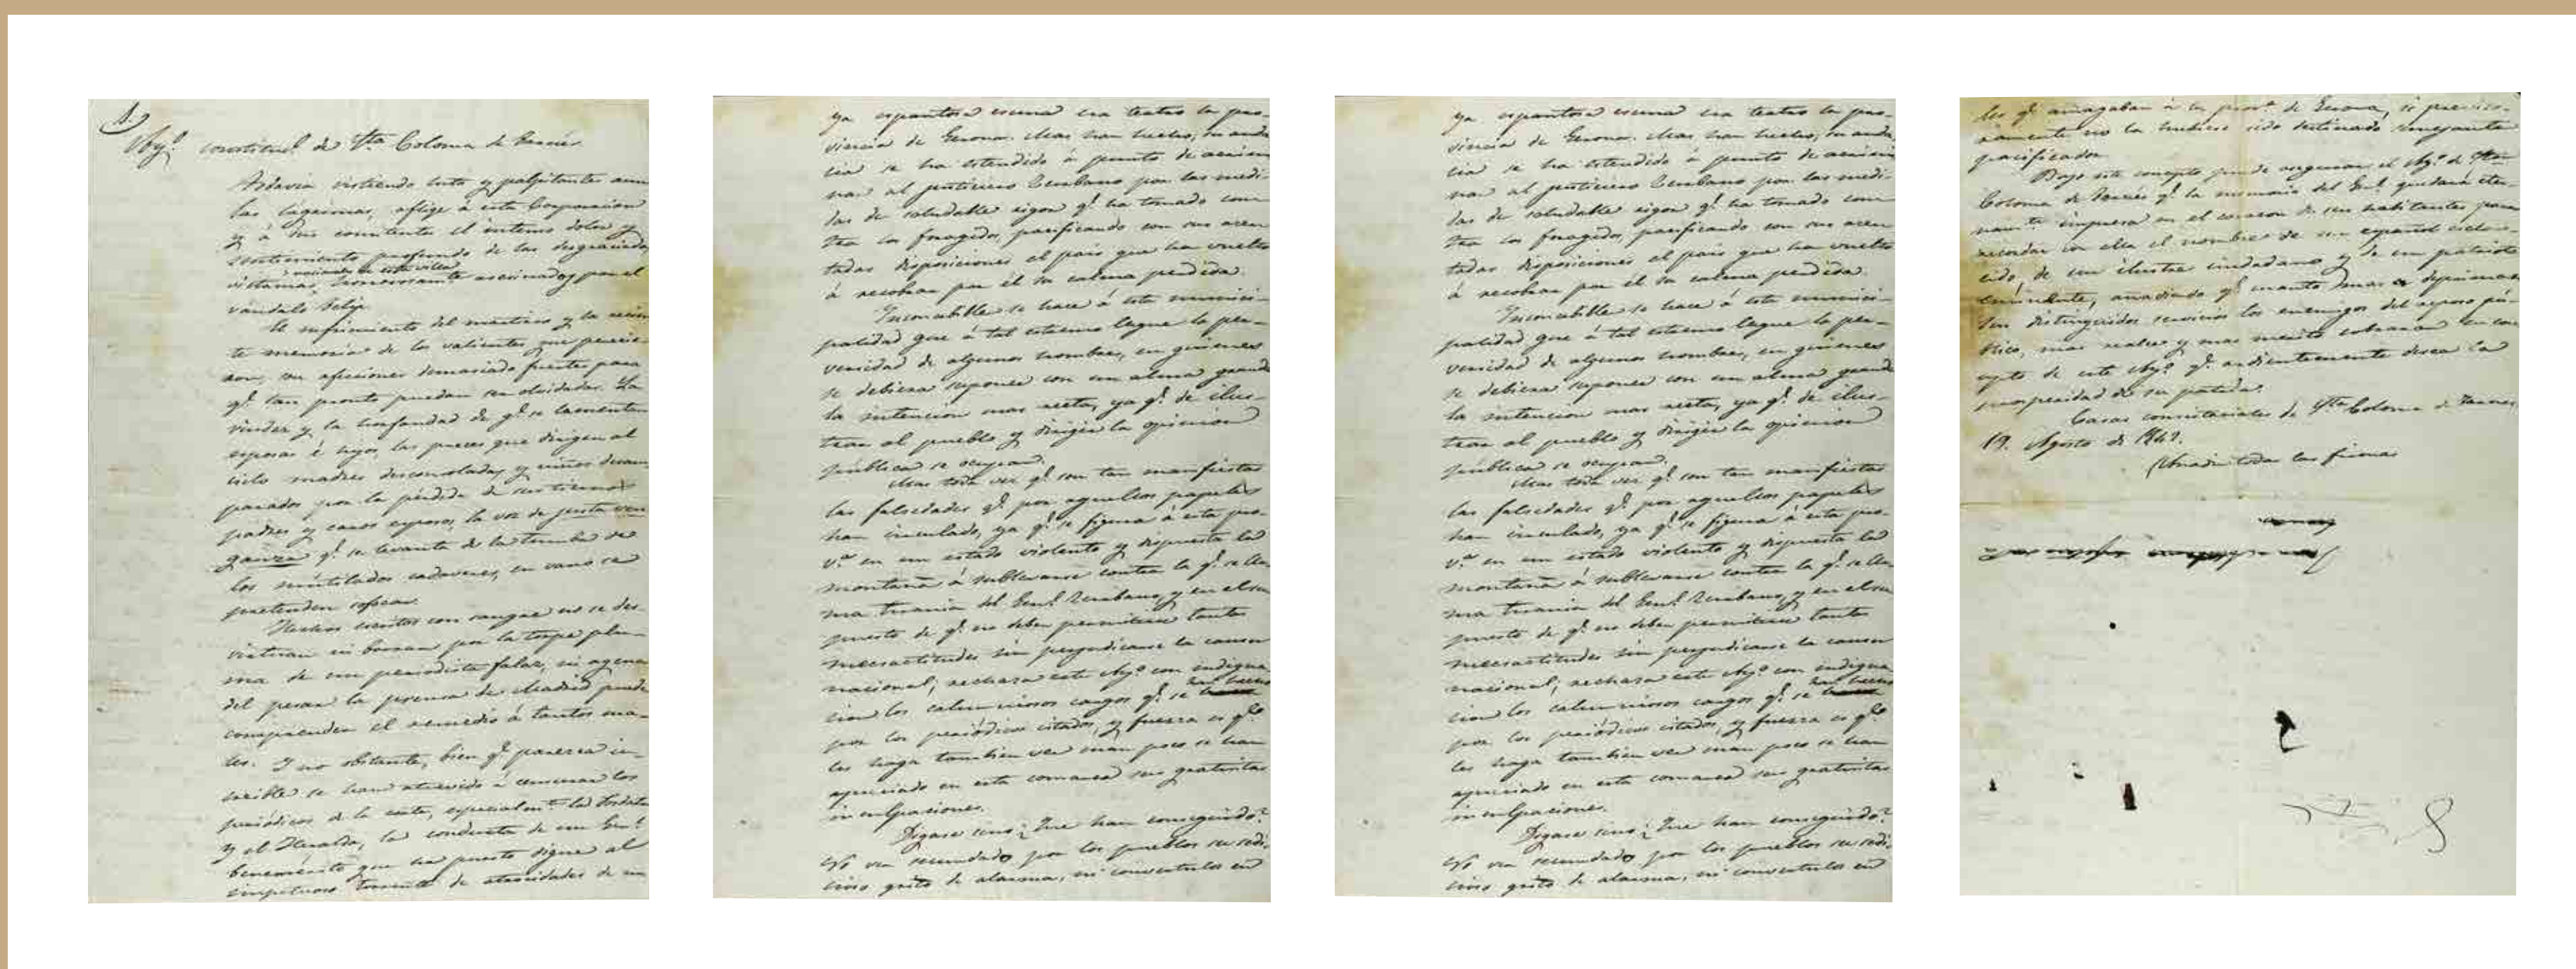 Ayto. constitucl. de Sta Coloma de Farnés
Todavia vistiendo luto y palpitantes aun
las lagrimas, aflige à esta Corporacion
y à sus comitentes el intenso dolor y
sentimiento profundo de las desgraciadas
nacionales de esta villa
victimas, horrorosamte. asesinados por el
vándalo Felip.
El sufrimiento del martirio y la recien
te memoria de los valientes que perecie
ron, son afecciones demasiado fuertes para
qe. tan pronto puedan ser olvidadas. La
viudez y la horfandad de qe. se lamentan
esposas é hijos, las preces que dirigen al
cielo madres desconsoladas y niños desam
parados por la pérdida de sus tiernos
padres y caros esposos, la voz de justa ven
ganza qe. se levanta de la tumba de
los mutilados cadaveres, en vano se
pretenden sofocar.
Hechos escritos con sangre no se des
virtuan ni borran por la torpe plu-
ma de un periodista falaz, ni agena
del pesar la prensa de Madrid puede
comprender el remedio à tantos ma-
les. Y no obstante, bien qe. parezca in-
creible se han atrevido à censurar los
periódicos de la corte, especialmte. la Postdata
y el Heraldo, la conducta de un Genl.
benemérito que ha puesto dique al
impetuoso torrente de atrocidades de un
ya espantosa escena era teatro la pro-
vincia de Gerona. Mas han hecho, su auda
cia se ha estendido à punto de acrimi
nar al justiciero Zurbano por las medi-
das de saludable rigor qe. ha tomado con
tra los foragidos, pacificando con sus acer
tadas disposiciones el pais que ha vuelto
à recobrar por él su calma perdida.
Inconcebible se hace à este munici-
palidad que à tal estremo llegue la per-
versidad de algunos hombres, en quienes
se debiera suponer con un alma grande
la intencion mas recta, ya qe. de ilus-
trar al pueblo y dirigir la opinion
pública se ocupan.
Mas toda vez qe. son tan manifiestas
las falsedades qe. por aquellos papeles
han circulado, ya qe. se figura à esta pro
va. en un estado violento y dispuesta la
montaña à sublevarse contra la qe. se lla
ma tirania del Genl. Zurbano, y en el su
puesto de qe. no deben permitirse tantas
inecsactitudes sin perjudicarse la causa
nacional; rechaza este Ayto. con indigna
han hecho
cion los calumniosos cargos qe. se
por los periódicos citados, y fuerza es qe.
les haga tambien ver cuan poco se han
apreciado en esta comarca sus gratuitas
inculpaciones.
Digase sino ¿Que han conseguido?
No ver secundado por los pueblos su sedi-
cioso grito de alarma, ni convertirlos en
ya espantosa escena era teatro la pro-
vincia de Gerona. Mas han hecho, su auda
cia se ha estendido à punto de acrimi
nar al justiciero Zurbano por las medi-
das de saludable rigor qe. ha tomado con
tra los foragidos, pacificando con sus acer
tadas disposiciones el pais que ha vuelto
à recobrar por él su calma perdida.
Inconcebible se hace à este munici-
palidad que à tal estremo llegue la per-
versidad de algunos hombres, en quienes
se debiera suponer con un alma grande
la intencion mas recta, ya qe. de ilus-
trar al pueblo y dirigir la opinion
pública se ocupan.
Mas toda vez qe. son tan manifiestas
las falsedades qe. por aquellos papeles
han circulado, ya qe. se figura à esta pro
va. en un estado violento y dispuesta la
montaña à sublevarse contra la qe. se lla
ma tirania del Genl. Zurbano, y en el su
puesto de qe. no deben permitirse tantas
inecsactitudes sin perjudicarse la causa
nacional; rechaza este Ayto. con indigna
han hecho
cion los calumniosos cargos qe. se
por los periódicos citados, y fuerza es qe.
les haga tambien ver cuan poco se han
apreciado en esta comarca sus gratuitas
inculpaciones.
Digase sino ¿Que han conseguido?
No ver secundado por los pueblos su sedi-
cioso grito de alarma, ni convertirlos en
les qe. amagaban à la prova. de Gerona, si precisa-
mente no la hubiese sido destinado semejante
pacificador.
Bajo este concepto puede asegurar el Ayto. de Sta
Coloma de Farnés qe. la memoria del Genl. quedará eter-
namte. impresa en el corazon de sus habitantes para
recordar con ella el nombre de un español esclare-
cido, de un ilustre ciudadano y de un patriota
eminente, añadiendo qe. cuanto mas depriman
sus distinguidos servicios los enemigos del reposo pú-
blico, mas realce y mas merito cobraran en con
cepto de este Ayto. qe. ardientemente desea la
prosperidad de su patria.
Casas consistoriales de Sta Coloma de Farnés
19. Agosto de 1842.
Añadir todas las firmas